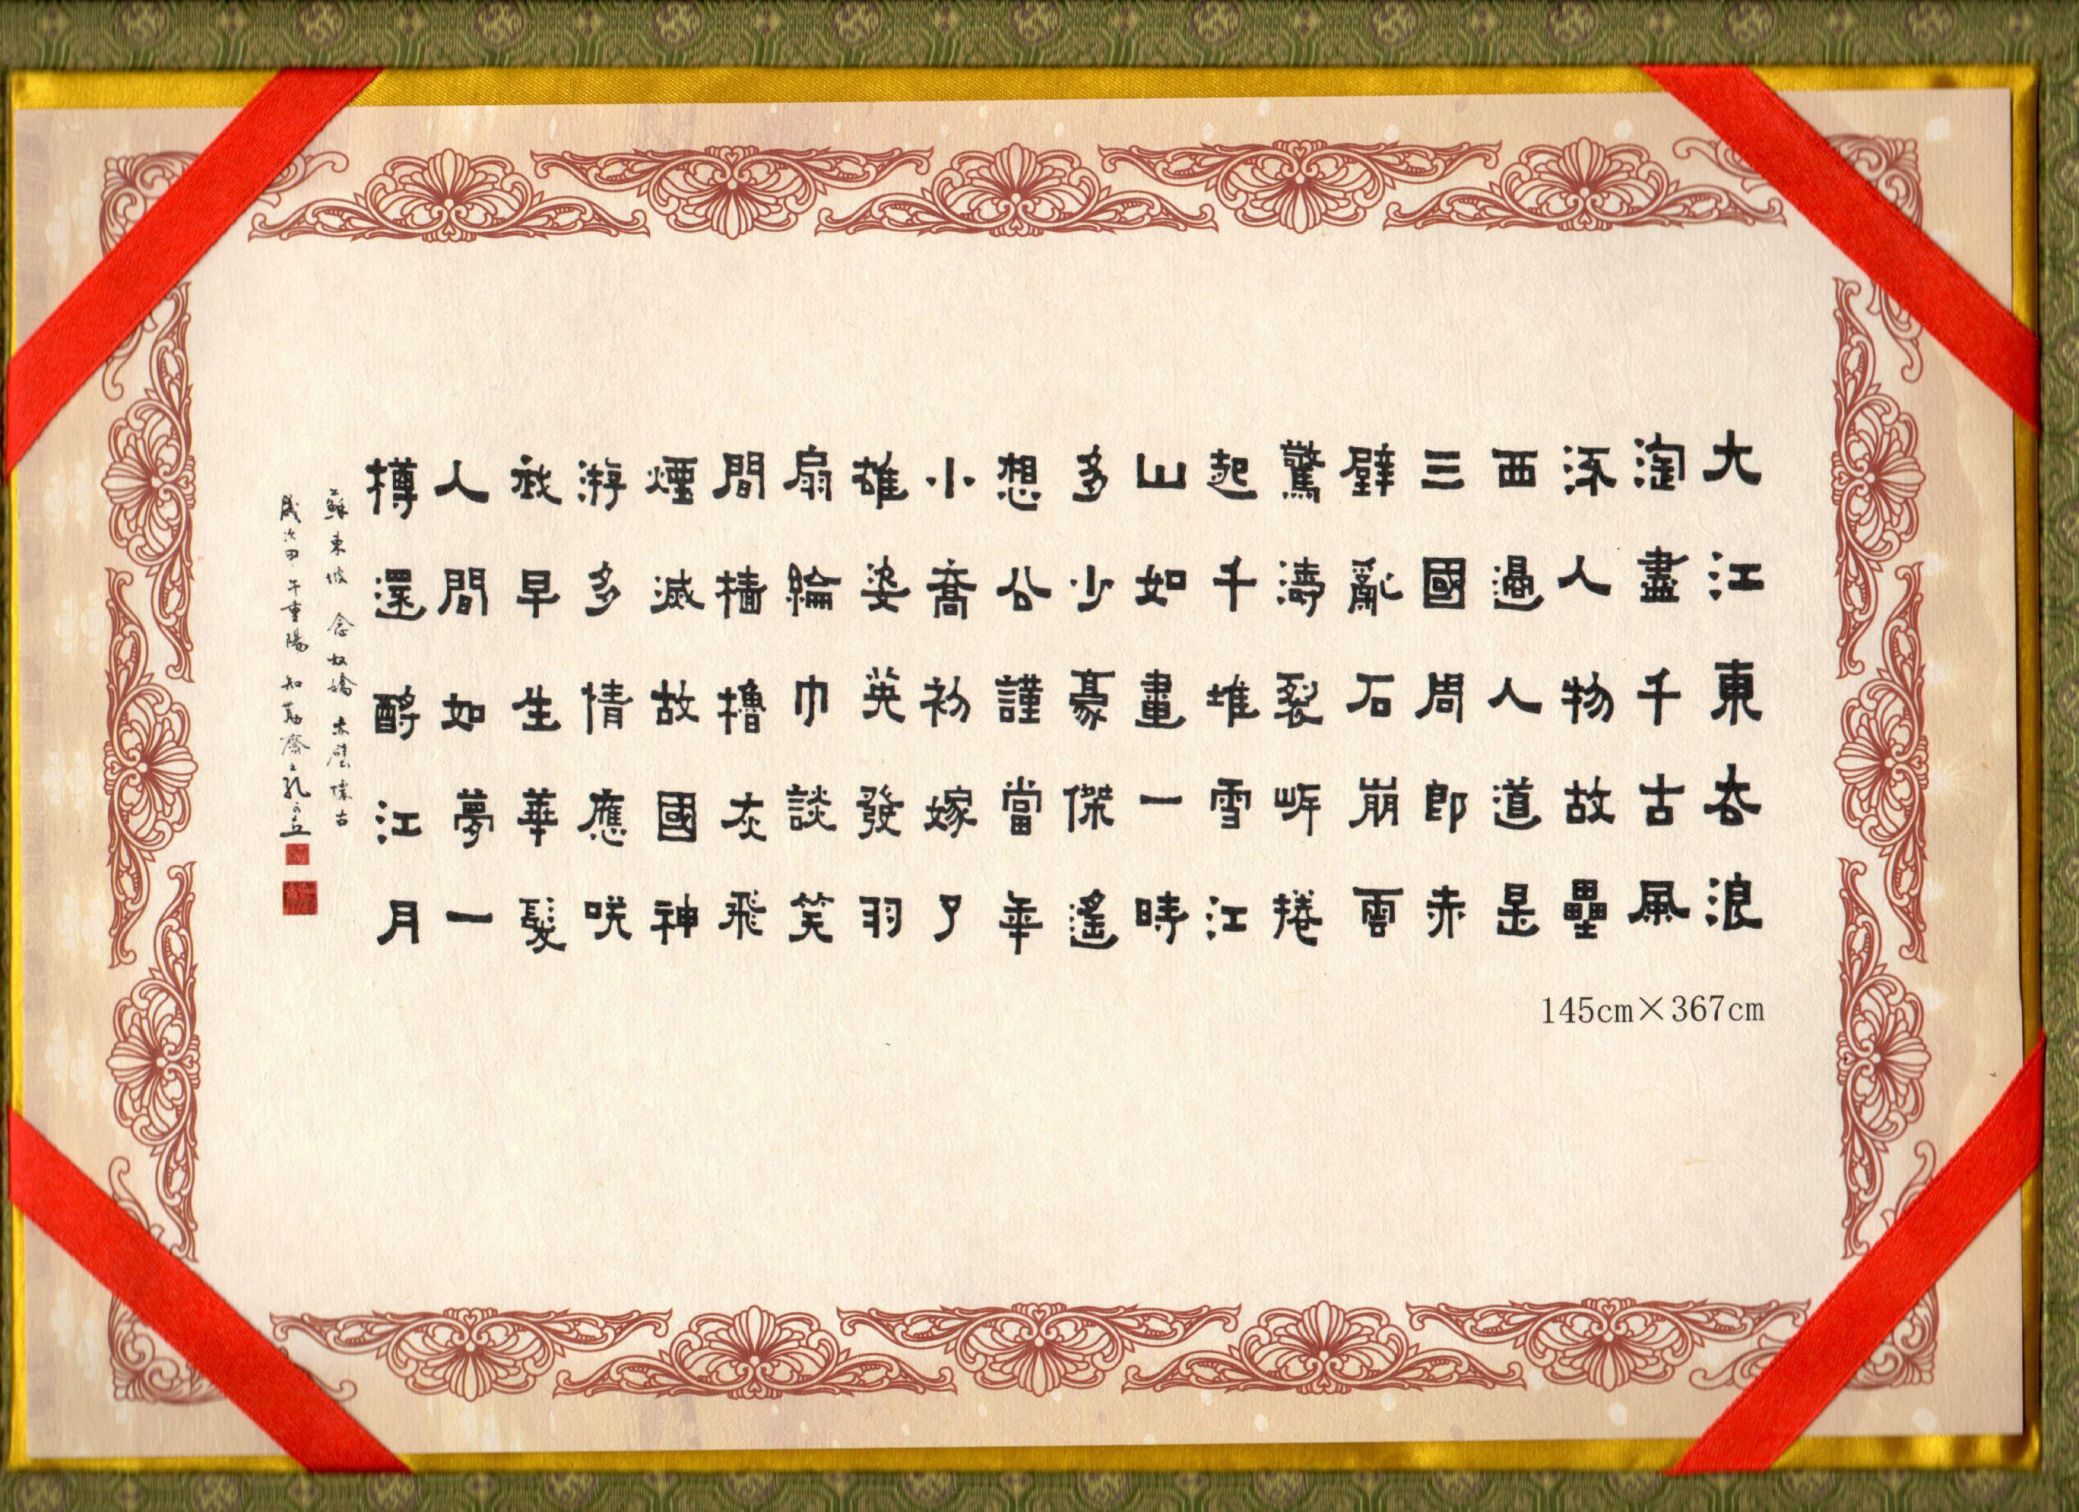 大江東去浪
淘盡千古風
流人物故壘
西邊人道是
三國周郎赤
壁亂石崩雲
驚濤裂岸捲
起千堆雪江
山如畫一時
多少豪傑遙
想公謹當年
小喬初嫁了
雄姿英發羽
扇綸巾談笑
間檣櫓灰飛
煙滅故國神
游多情應咲
我早生華髮
人間如夢一
樽還酹江月
蘇東坡 念奴嬌 赤壁懷古
歲次甲午重陽 知
145cm×367cm